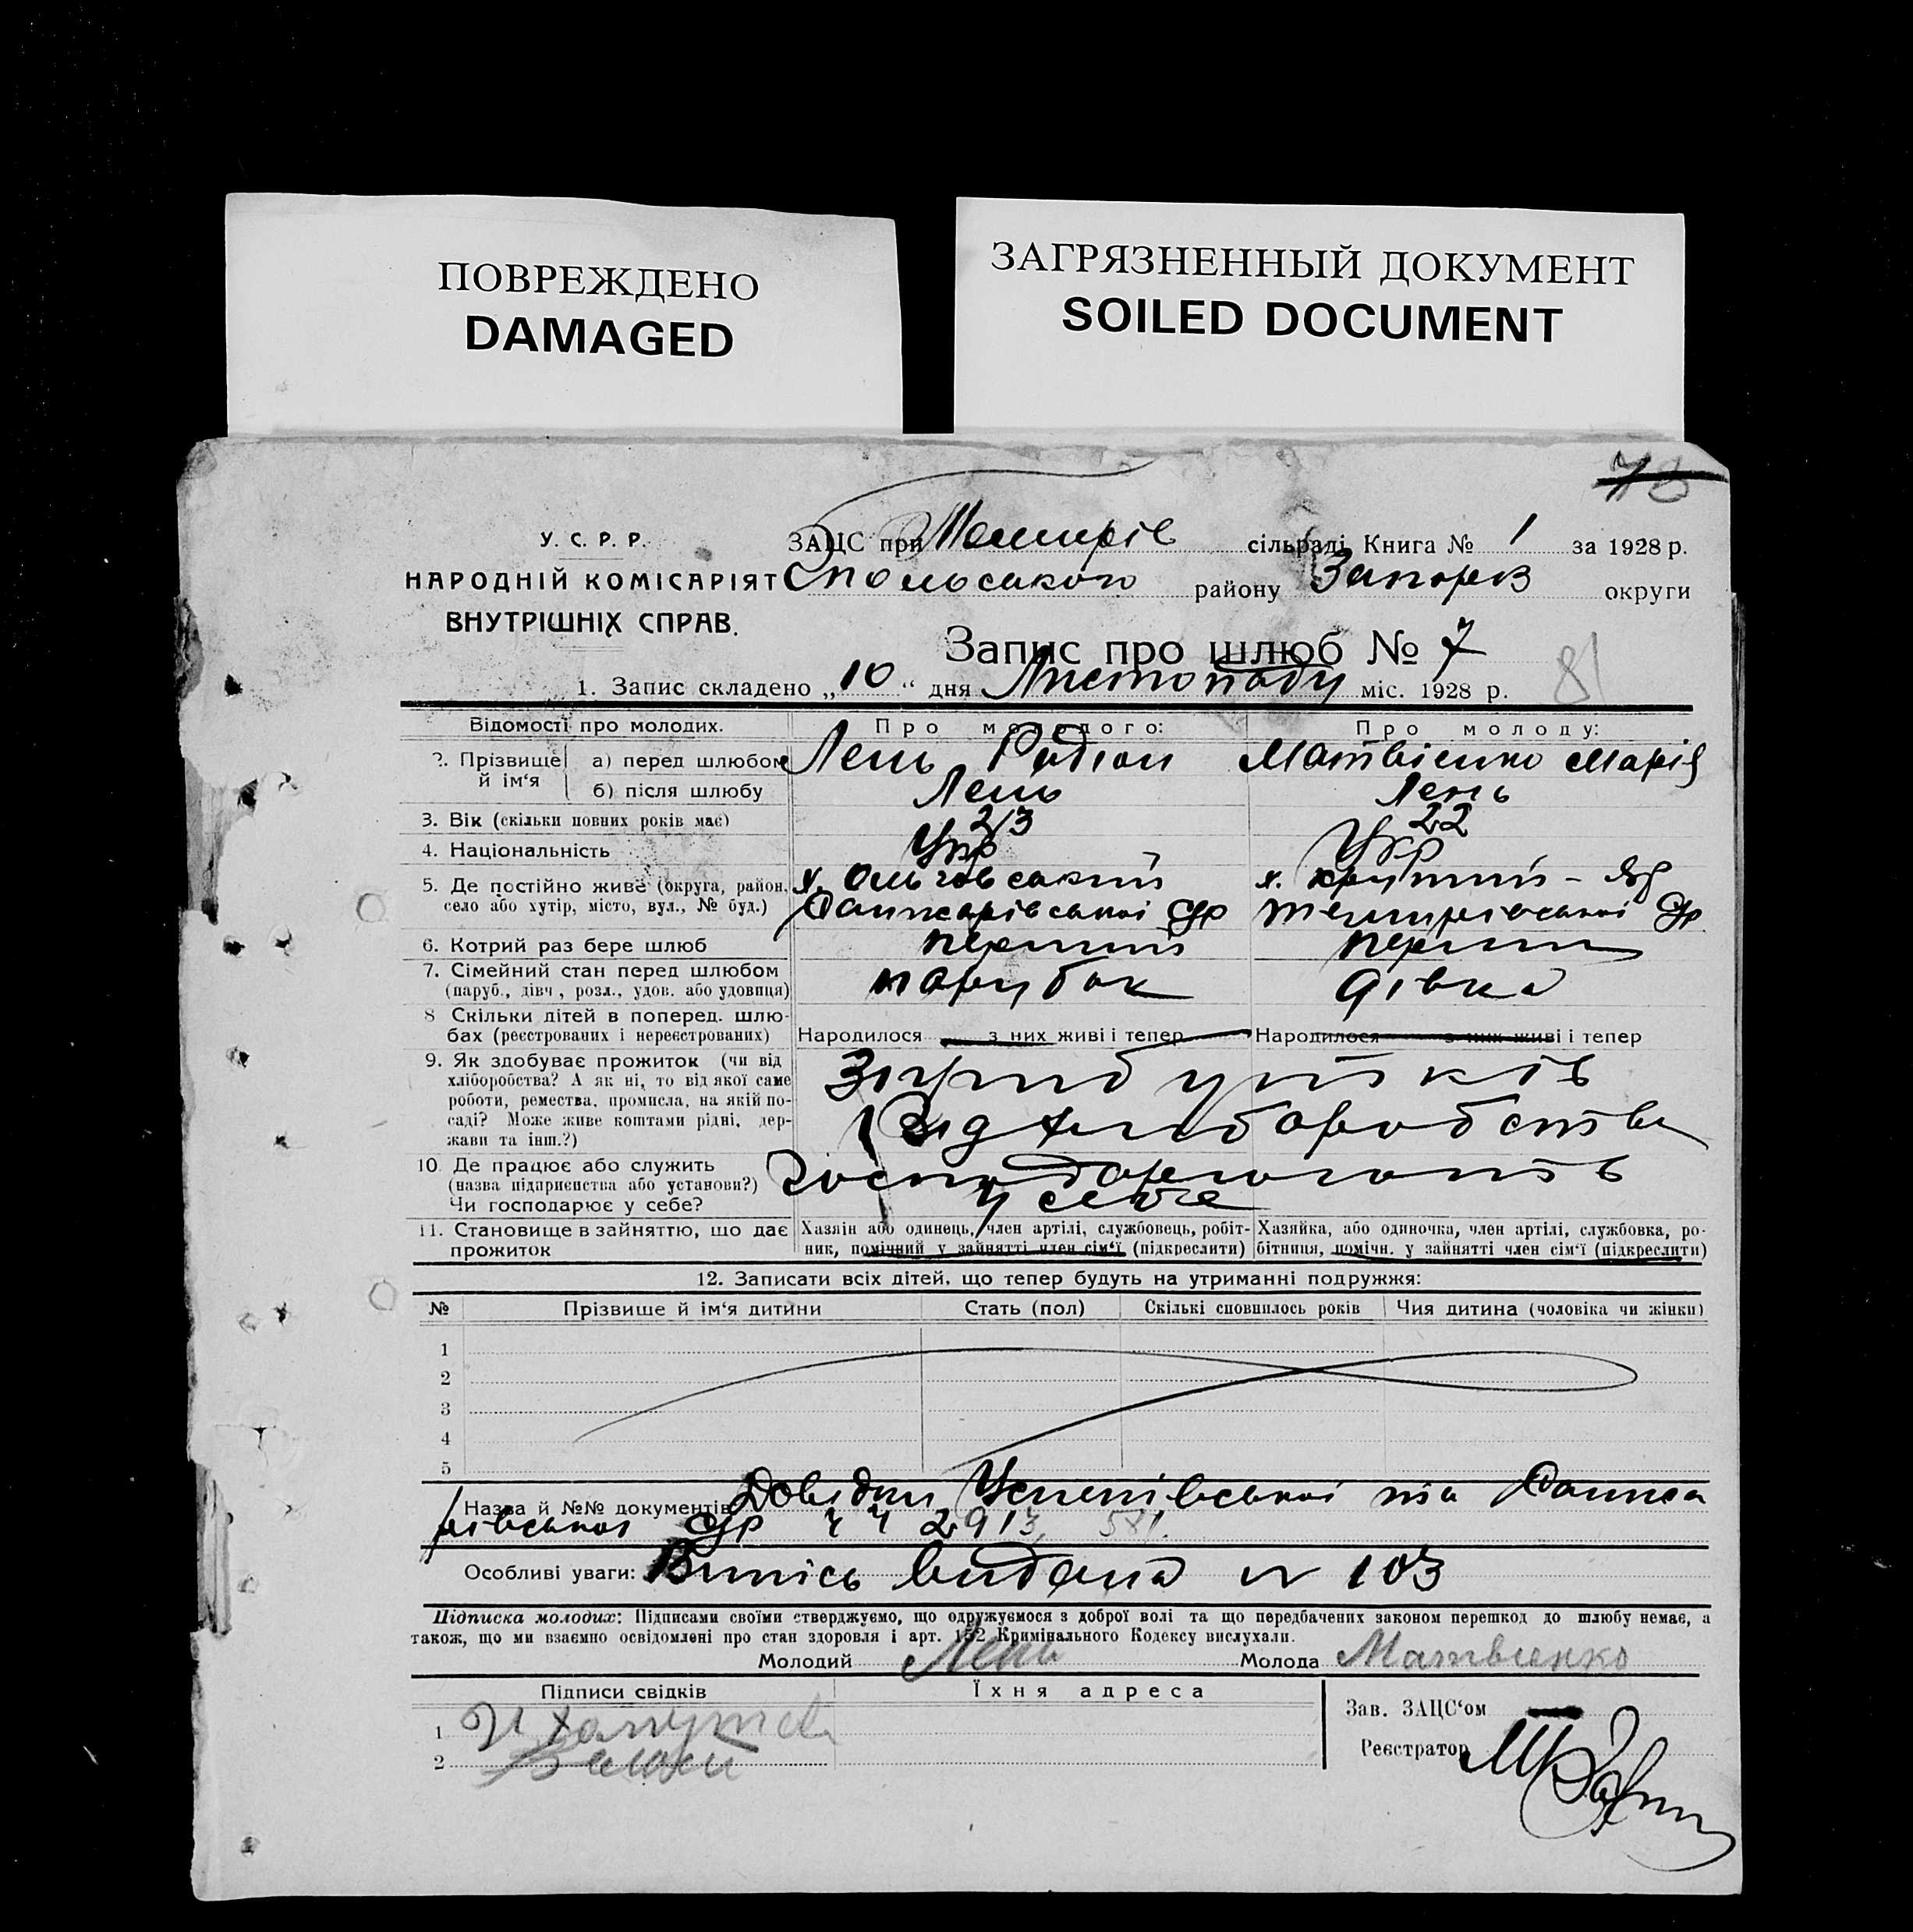 ПОВРЕЖДЕНО
DAMAGED
ЗАГРЯЗНЕННЫЙ ДОКУМЕНТ
SOILED DOCUMENT
78
У. С. Р. Р.
НАРОДНІЙ КОМІСАРІЯТ
ВНУТРІШНІХ СПРАВ.
ЗАЦС при Темирів сільраді Книга № 1 за 1928 р.
району Запоріз округи
Запис про шлюб № 7
81
1. Запис складено „10“ дня Листопаду міс. 1928 р.
Відомості про молодих. Про молодого: Про молоду:
2. Прізвище й ім'я а) перед шлюбом Лень Родіон Матвієнко Марія
б) після шлюбу Лень Лень
3. Вік (скільки повних років має) 23 22
4. Національність Укр Укр
5. Де постійно живе (округа, район, х. Ольговський х. Крутий-Яр
село або хутір, місто, вул., № буд.) Данкарівської Ср Темирівської Ср
6. Котрий раз бере шлюб перший перший
7. Сімейний стан перед шлюбом парубок дівка
(паруб., дівч., розл., удов. або удовиця)
8 Скільки дітей в поперед. шлю-
бах (реєстрованих і нереєстрованих) Народилося з них живі і тепер Народилося з них живі і тепер
9. Як здобуває прожиток (чи від
хліборобства? А як ні, то від якої саме
роботи, ремества, промисла, на якій по-
саді? Може живе коштами рідні, дер-
жави та інш.?)
З прибутків
Від хліборобства
10. Де працює або служить
(назва підприємства або установи?)
Чи господарює у себе?
господарюють
у себе
11. Становище в зайняттю, що дає Хазяін або одинець, член артілі, службовець, робіт- Хазяйка, або одиночка, член артілі, службовка, ро-
прожиток ник, помічний у зайнятті член сім'ї (підкреслити) бітниця, помічн. у зайнятті член сім'ї (підкреслити)
12. Записати всіх дітей, що тепер будуть на утриманні подружжя:
№ Прізвище й ім'я дитини Стать (пол) Скількі сповнилось років Чия дитина (чоловіка чи жінки)
1
2
3
4
5
Назва й №№ документів Довідки Успенівської та Данка
рівської Ср ч ч 2913, 581.
Особливі уваги: Випісь видана № 103
Підписка молодих: Підписами своїми стверджуємо, що одружуємося з доброї волі та що передбачених законом перешкод до шлюбу немає, а
також, що ми взаємно освідомлені про стан здоровля і арт. 152 Кримінального Кодексу вислухали.
Молодий Лень Молода Матвієнко
Підписи свідків Їхня адреса
1
2
Зав. ЗАЦС'ом
Реєстратор